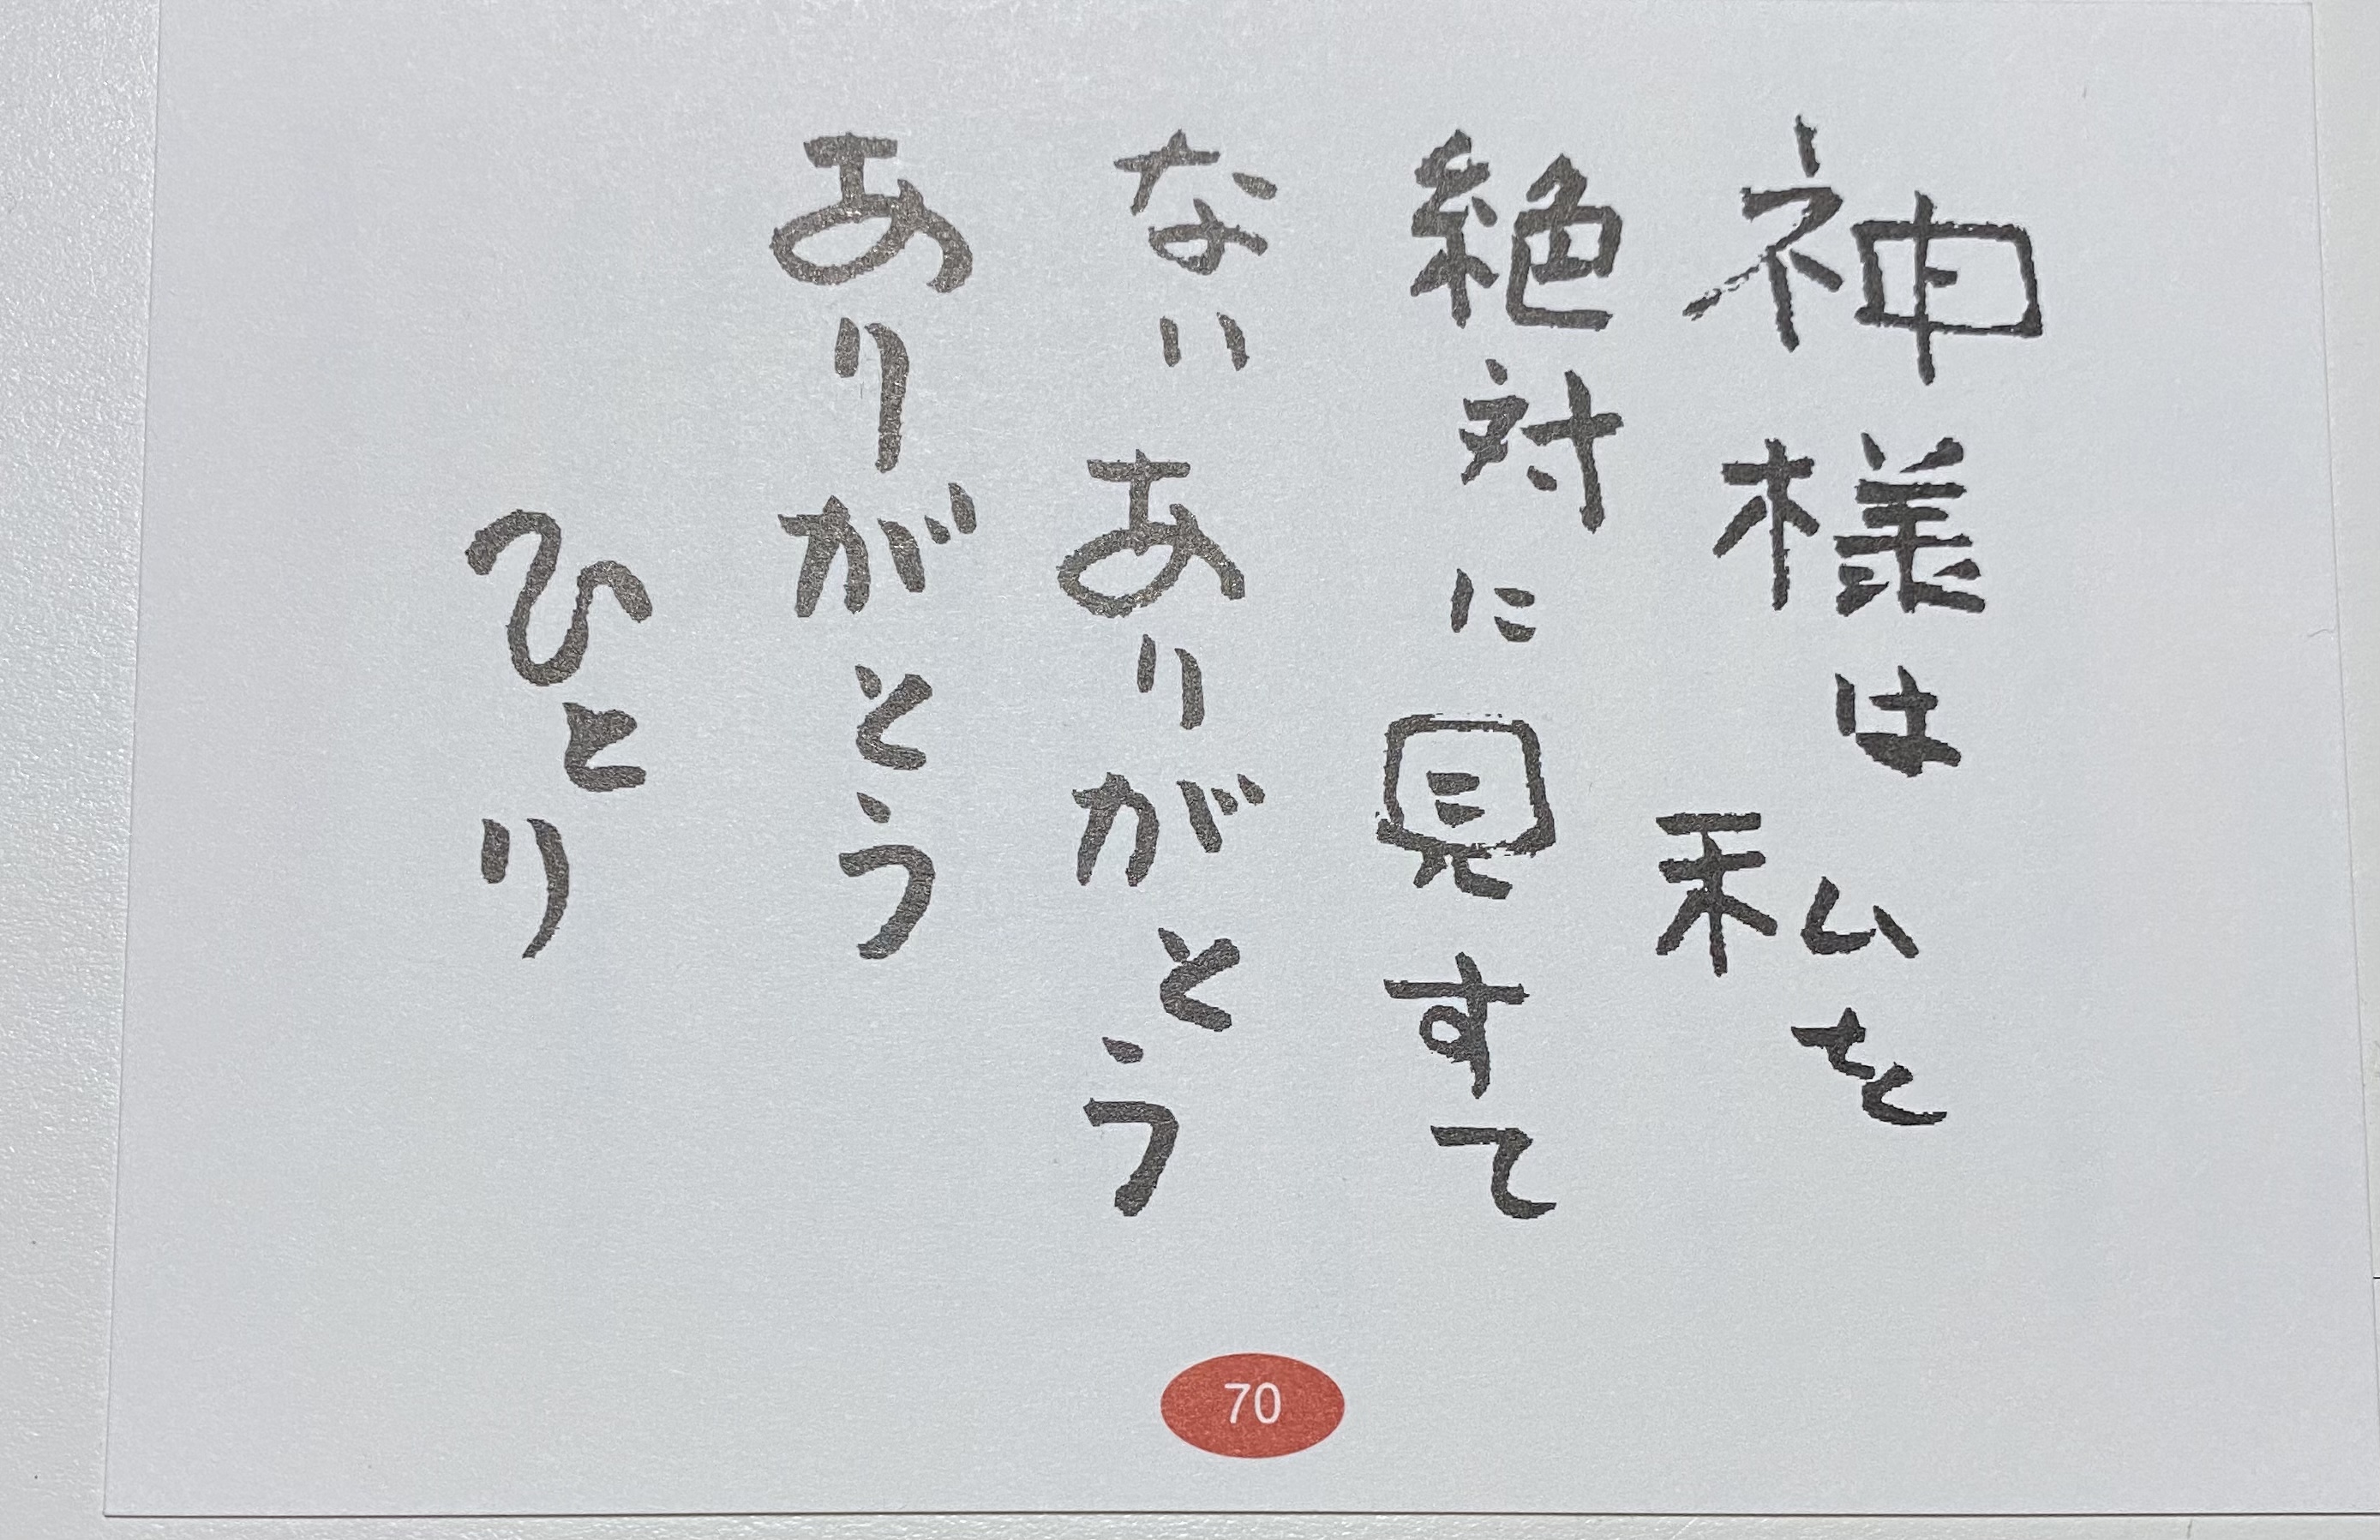 神様は私を
絶対に見すて
ない ありがとう
ありがとう
ひとり
70